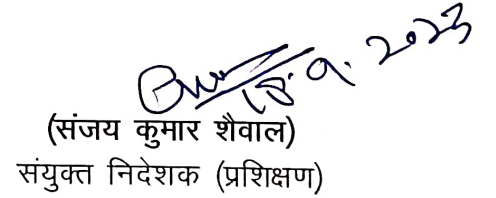 18.9.2023
(संजय कुमार शैवाल)
संयुक्त निदेशक (प्रशिक्षण)